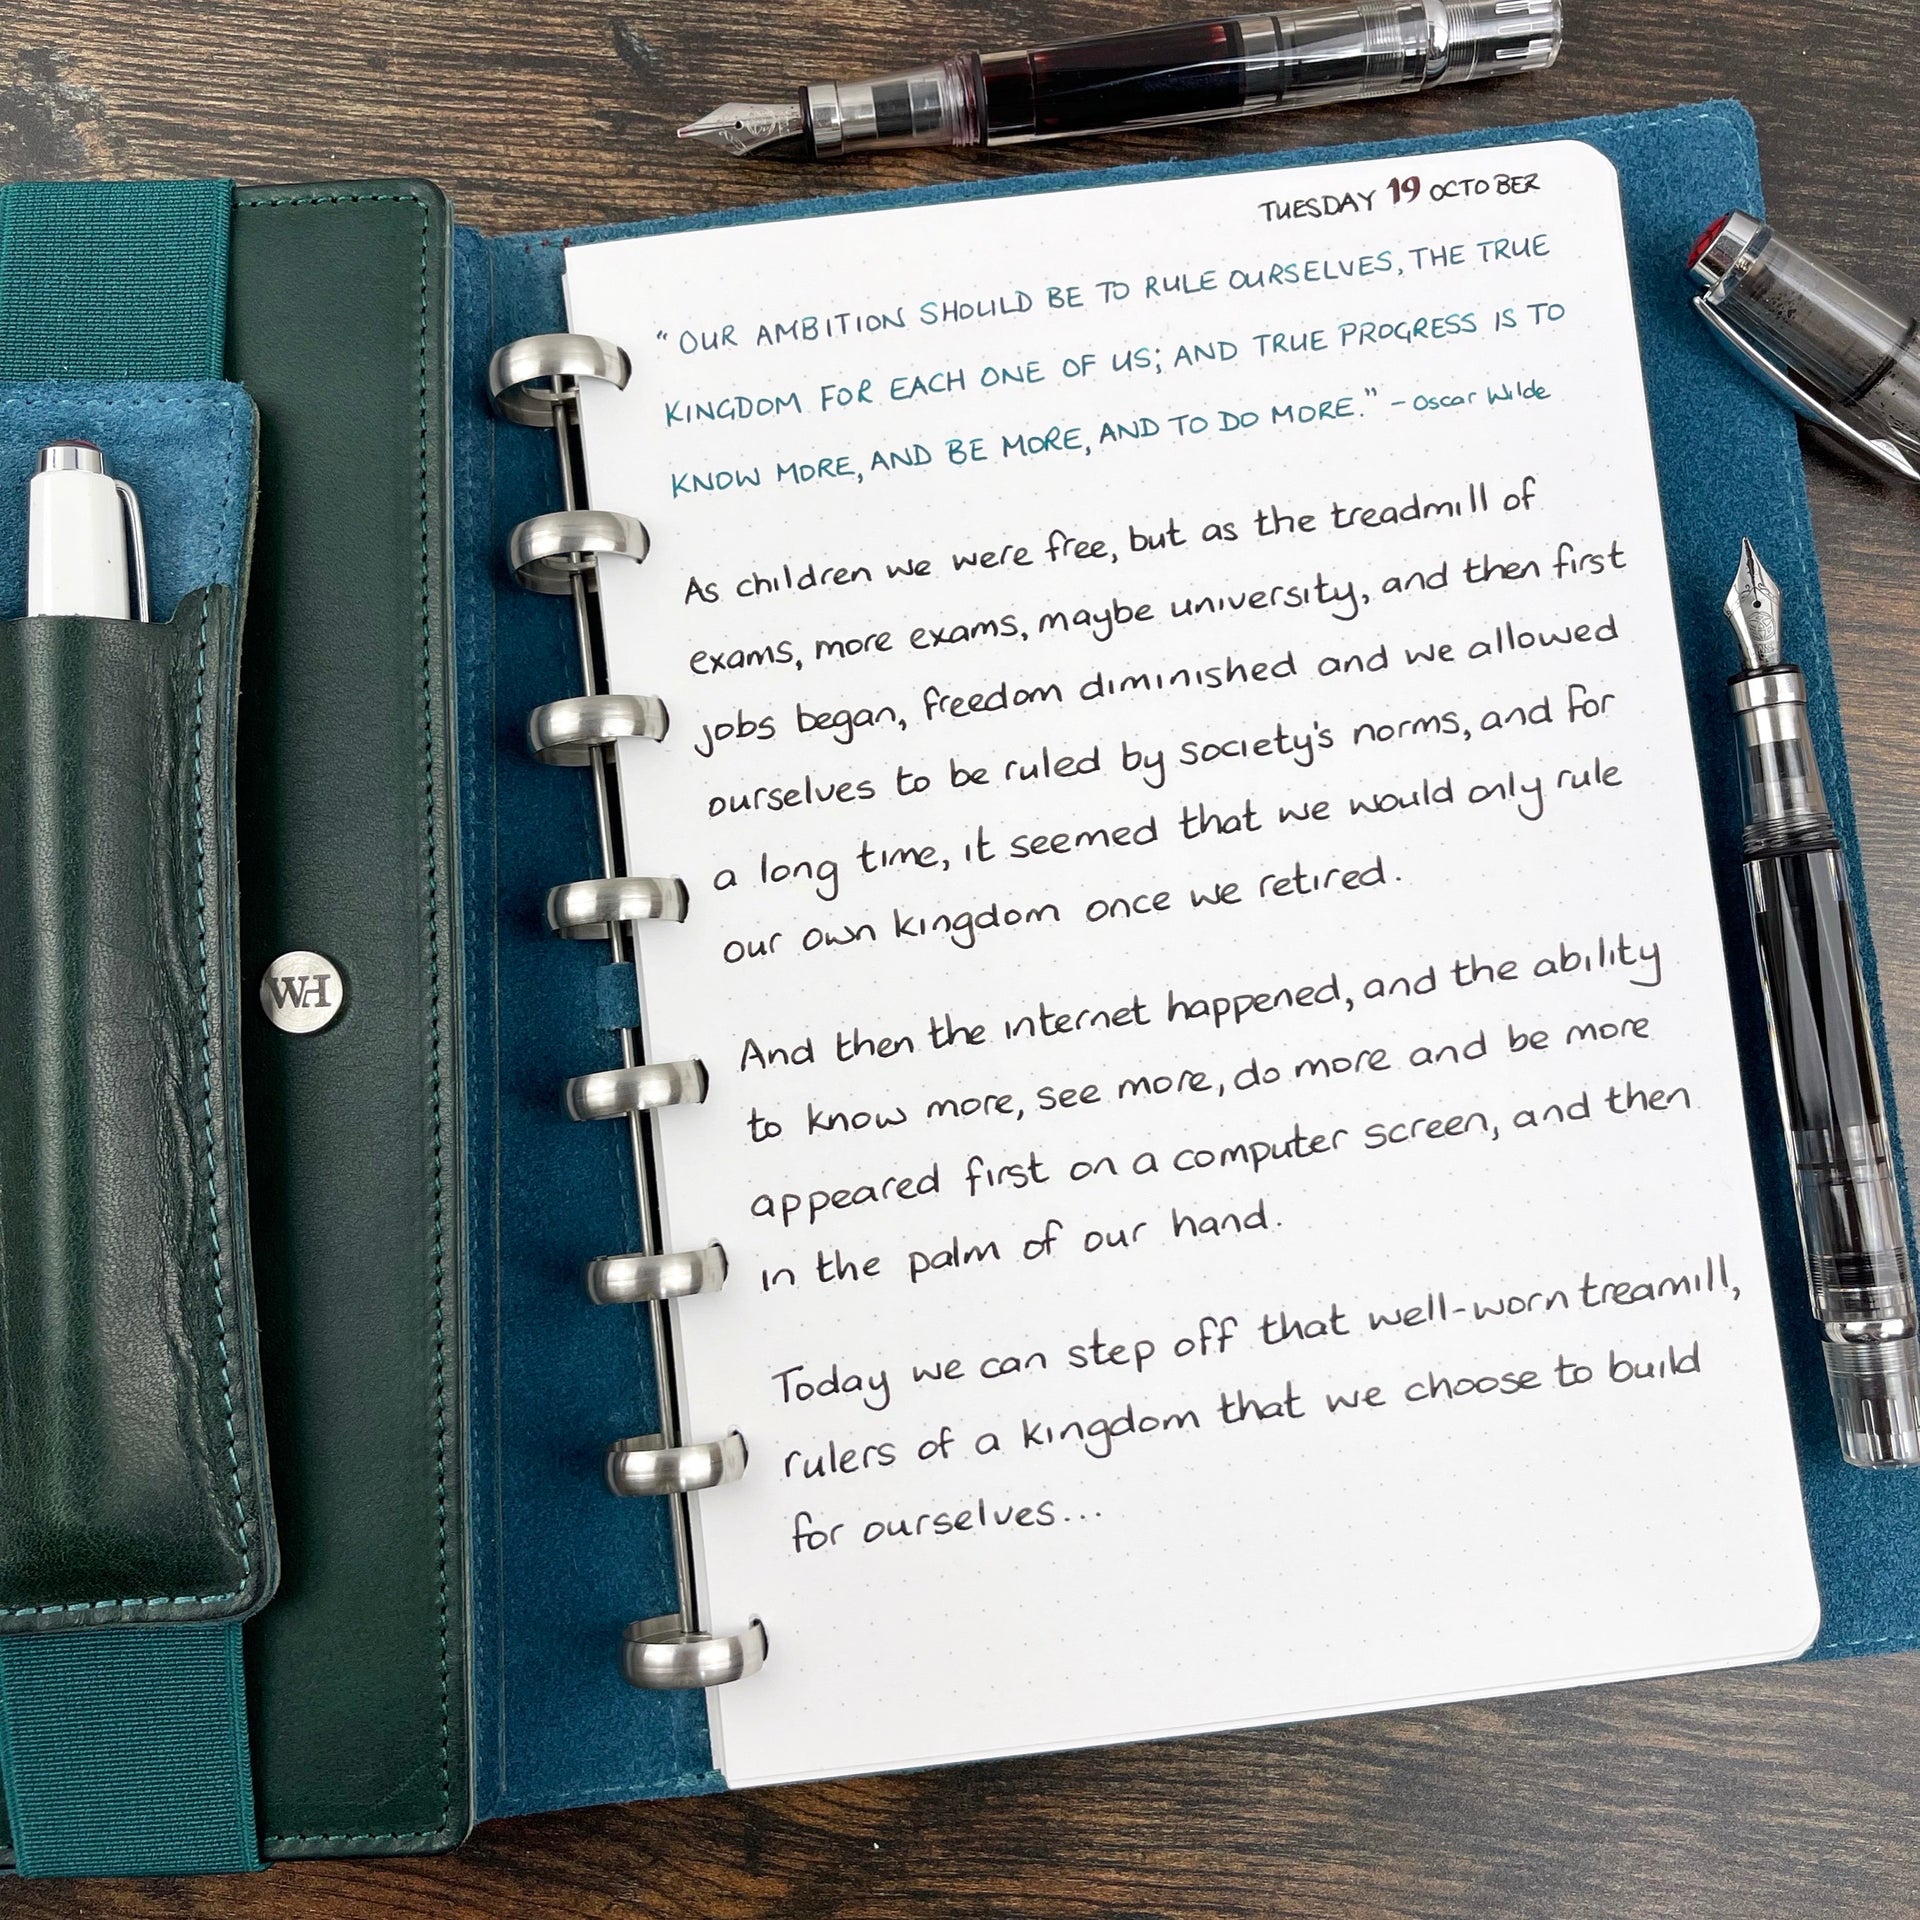 TUESDAY 19 OCTOBER
“OUR AMBITION SHOULD BE TO RULE OURSELVES, THE TRUE
KINGDOM FOR EACH ONE OF US; AND TRUE PROGRESS IS TO
KNOW MORE, AND BE MORE, AND TO DO MORE.” - Oscar Wilde
As children we were free, but as the treadmill of
exams, more exams, maybe university, and then first
jobs began, freedom diminished and we allowed
ourselves to be ruled by society's norms, and for
a long time, it seemed that we would only rule
our own kingdom once we retired.
And then the internet happened, and the ability
to know more, see more, do more and be more
appeared first on a computer screen, and then
in the palm of our hand.
Today we can step off that well-worn treamill,
rulers of a kingdom that we choose to build
for ourselves...
WH